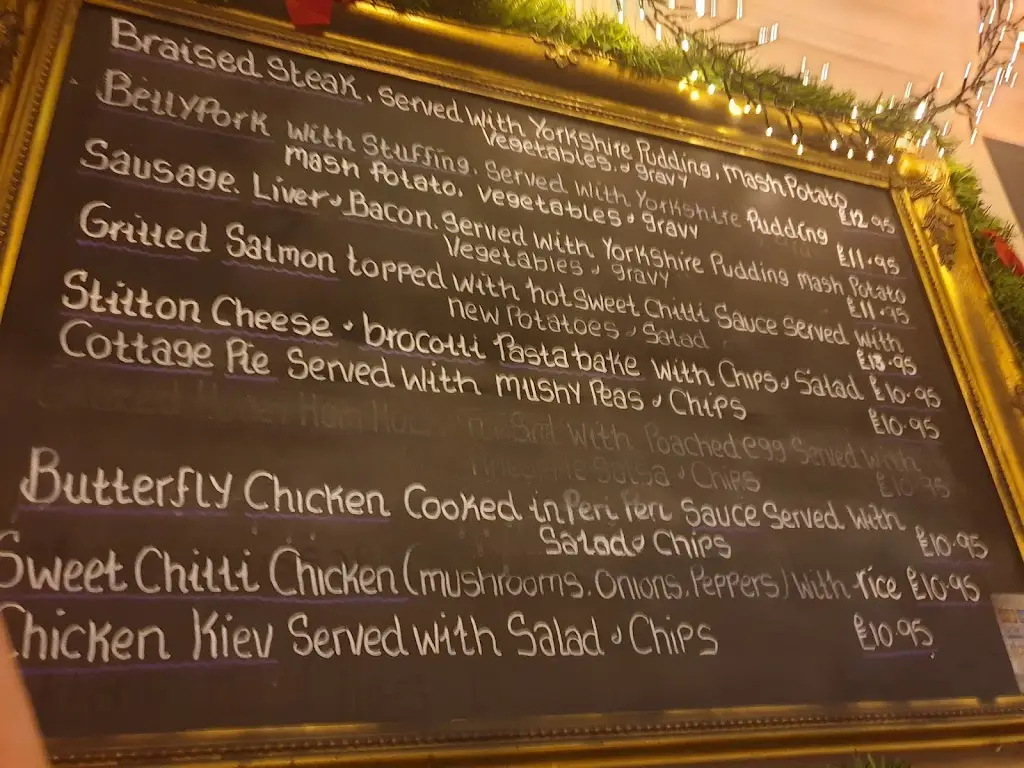 Braised Steak, Served With Yorkshire Pudding, Mash Potato
Vegetables, & gravy £12.95
BellyPork with Stuffing, Served with Yorkshire Pudding
mash Potato, vegetables & gravy £11.95
Sausage, Liver & Bacon, Served with Yorkshire Pudding mash Potato
Vegetables & gravy £11.95
Grilled Salmon topped with hot Sweet Chilli Sauce Served with
new Potatoes & Salad £13.95
Stilton Cheese & brocolli Pasta bake with Chips & Salad £10.95
Cottage Pie Served with mushy Peas & Chips £10.95
Ham With Poached egg Served With
Salsa & Chips £10.95
Butterfly Chicken Cooked in Peri Peri Sauce Served With
Salad & Chips £10.95
Sweet Chilli Chicken (mushrooms, Onions, Peppers) with rice £10.95
Chicken Kiev Served with Salad & Chips £10.95